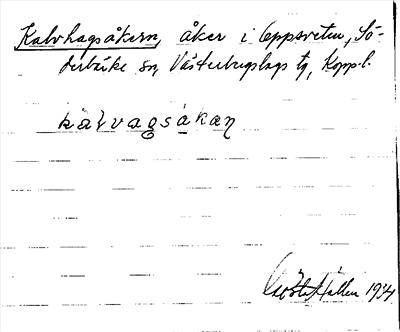 Kalvhagsåkern, åker i Oppsveten, Sö-
derbärke sn, Västerbergslags tg, Kopp.l.
kalvagsåkaṇ
Gösta Hallen 1934